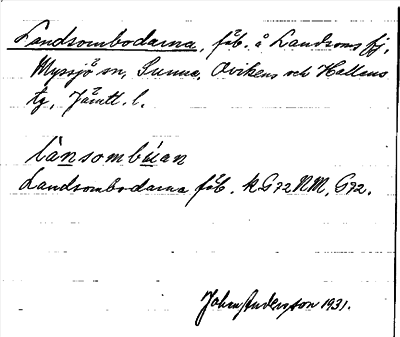 Landsombodarna, fäb. å Landsoms fj,
Myssjö sn, Sunne, Ovikens och Hallens
tg, Jämtl. l.
lànsombúan
Landsombodarna fäb. kG72NM, G72.
John Andersson 1931.